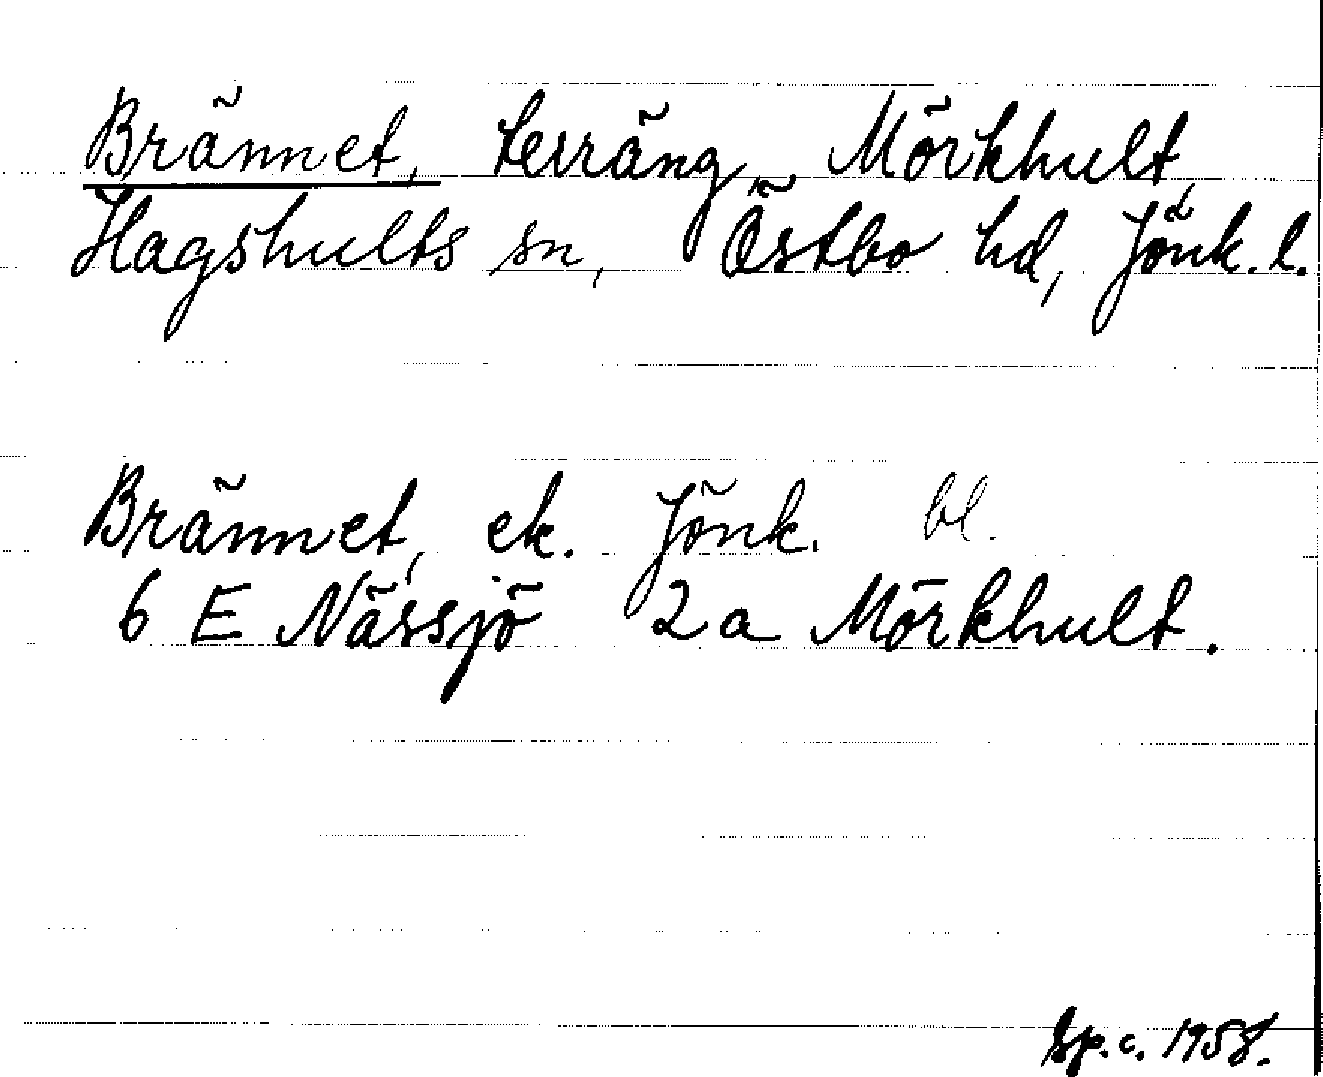 Brännet, terräng, Mörkhult,
Hagshults sn, Östbo hd, Jönk. l.
Brännet, ek. Jönk. bl.
6 E Nässjö 2 a Mörkhult.
Sp. c. 1958.